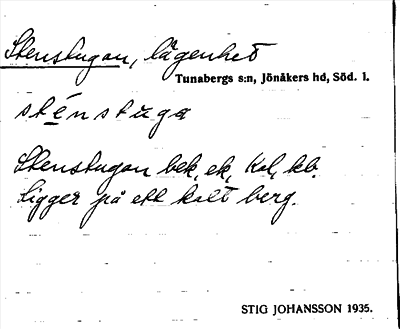 Stenstugan, lägenhet
Tunabergs s:n, Jönåkers hd, Söd. l.
sténstuga
Stenstugan bek, ek, Kal, kb.
Ligger på ett kalt berg.
STIG JOHANSSON 1935.